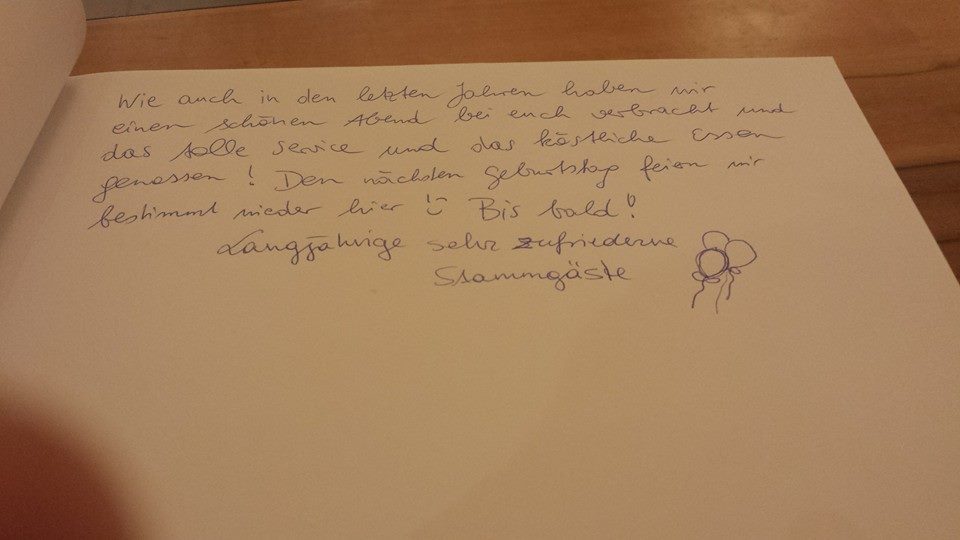 Wie auch in den letzten Jahren haben wir
einen schönen Abend bei euch verbracht und
das tolle Service und das köstliche Essen
genossen! Den nächsten Geburtstag feiern wir
bestimmt wieder hier :) Bis bald!
Langjährige sehr zufriedene
Stammgäste